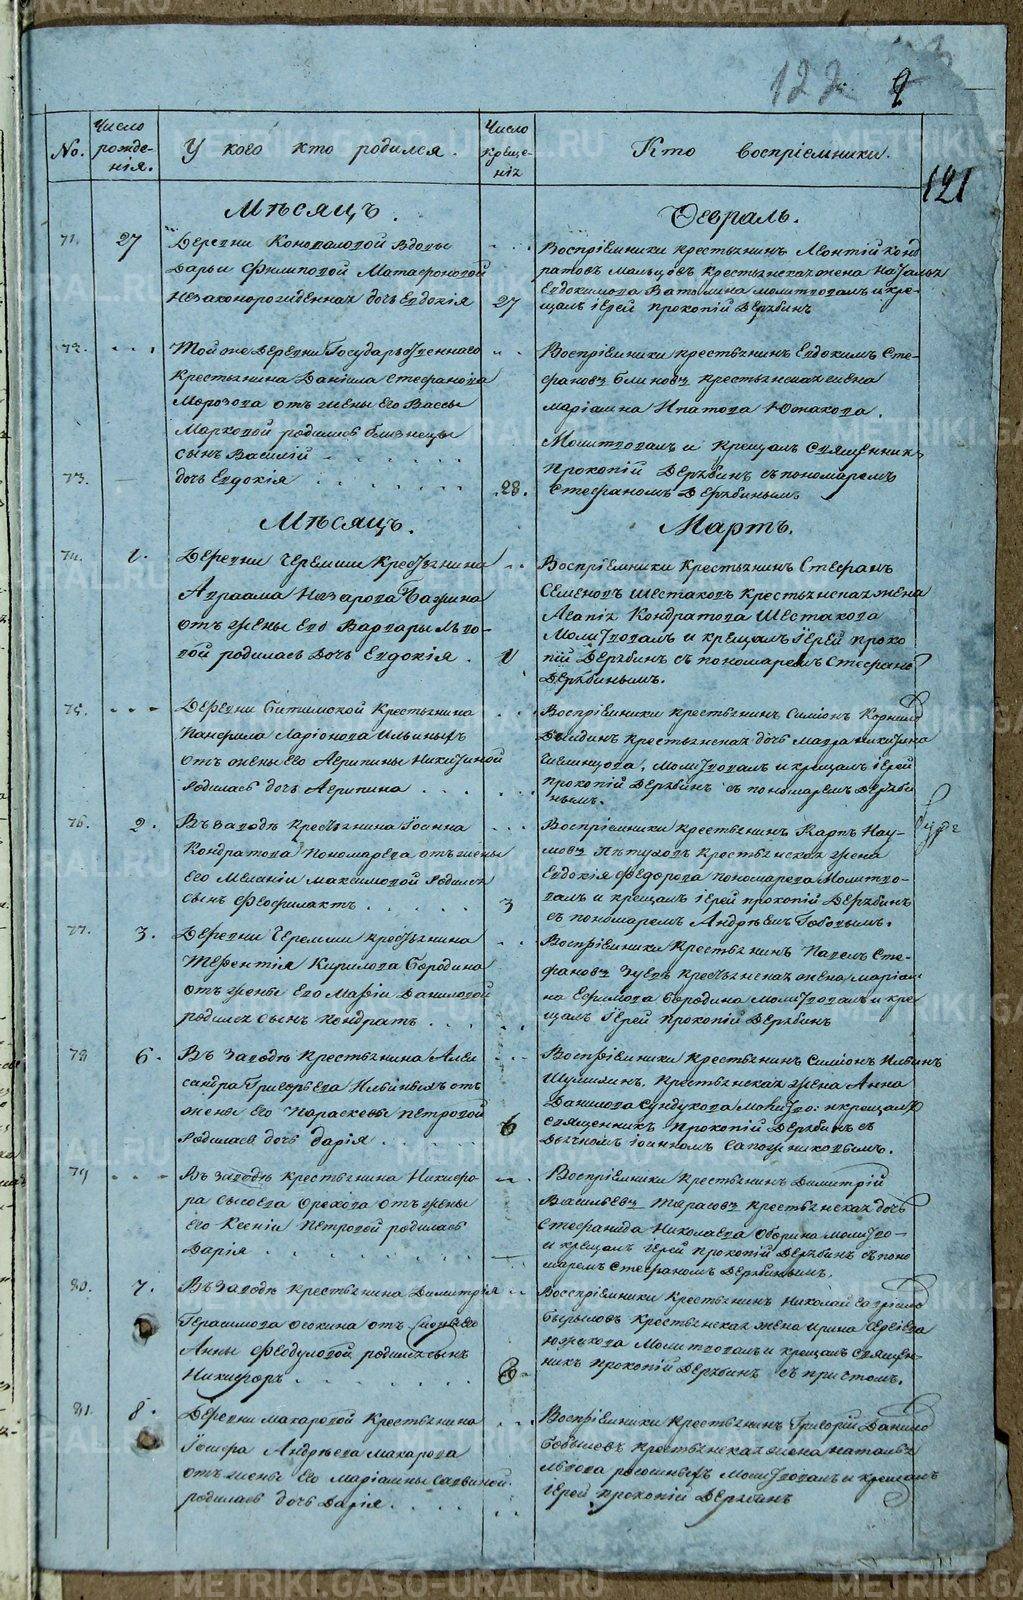 122
121
No.
Число рожденія.
У кого кто родился.
Число крещенія
Кто восприемники.
Мѣсяцъ.
Февраль.
71.
27
Деревни Коноваловой вдовы
Дарьи Филиповой Матафоновой
незаконорожденная дочь Евдокія
27
Восприемники крестьянинъ Леонтій Конд
ратовъ Мальцовъ крестьянская жена Наталья
Евдокимова Ватолина молитвовалъ и кре-
щалъ іерей Прокопій Дерябинъ
72.
Той же деревни Государственнаго
крестьянина Даніила Стефанова
Морозова отъ жены его Вассы
Марковой родились близнецы
сынъ Василій
73.
дочь Евдокія
28.
Восприемники крестьянинъ Евдокимъ Сте-
фановъ Блиновъ крестьянская жена
Маріамна Ипатова Южакова.
Молитвовалъ и крещалъ священникъ
Прокопій Дерябинъ съ пономаремъ
Стефаномъ Дерябинымъ
Мѣсяцъ.
Мартъ.
74.
1.
Деревни Черемши крестьянина
Авраама Назарова Бажина
отъ жены его Варвары Льво-
вой родилась дочь Евдокія.
1
Восприемники крестьянинъ Стефанъ
Семеновъ Шестаковъ крестьянская жена
Агапія Кондратова Шестакова
Молитвовалъ и крещалъ іерей Проко
пій Дерябинъ съ пономаремъ Стефано
Дерябинымъ.
75.
Деревни Битимской крестьянина
Панфила Ларіонова Ильиныхъ
отъ жены его Агрипины Никитиной
родилась дочь Агрипина
Восприемники крестьянинъ Симіонъ Корнило
крестьянская дочь Мавра Никитина
молитвовалъ и крещалъ іерей
Прокопій Дерябинъ съ пономаремъ Деряби
нымъ.
76.
2.
Въ заводѣ крестьянина Іоанна
Кондратова Пономарева отъ жены
его Меланіи Максимовой родился
сынъ Феофилактъ
3
Восприемники крестьянинъ Карпъ Нау-
мовъ Пѣтуховъ крестьянская жена
Евдокія Федорова Пономарева молитво-
валъ и крещалъ іерей Прокопій Дерябинъ
съ пономаремъ Андрѣемъ
77.
3.
Деревни Черемши крестьянина
Терентія Кирилова Бородина
отъ жены его Марѳіи Даниловой
родился сынъ Кондратъ
Восприемники крестьянинъ Павелъ Сте-
фановъ Зуевъ крестьянская жена Маріам
на Ефимова Бородина молитвовалъ и кре
щалъ іерей Прокопій Дерябинъ
78
6.
Въ заводѣ крестьянина Алек
сандра Григорьева Ильиныхъ отъ
жены его Параскевы Петровой
родилась дочь Дарія
6
Восприемники крестьянинъ Симіонъ Ильинъ
Шумилинъ. крестьянская жена Анна
Данилова Сундукова молитво: и крещалъ
священникъ Прокопій Дерябинъ съ
дьячкомъ Іоанномъ Сапожниковымъ.
79
Въ заводѣ крестьянина Никифо
ра Сысоева Орехова отъ жены
его Ксеніи Петровой родилась
Дарія
Восприемники крестьянинъ Димитрій
Васильевъ Тарасовъ крестьянская дочь
Стефанида Николаева Оборина молитво-
и крещалъ іерей Прокопій Дерябинъ съ поно
маремъ Стефаномъ Дерябинымъ.
80.
7.
Въ заводѣ крестьянина Димитрія
Герасимова Осокина отъ жены его
Анны Федуловой родился сынъ
Никифоръ
8
Восприемники крестьянинъ Николай
крестьянская жена Ирина Сергіева
Южакова молитвовалъ и крещалъ священ-
никъ Прокопій Дерябинъ съ причтомъ.
81.
8.
Деревни Макаровой крестьянина
Іосифа Андрѣева Макарова
отъ жены его Маріамны Савиной
родилась дочь Дарія
Восприемники крестьянинъ Григорій Данило
Бобылевъ крестьянская жена Наталья
Львова молитвовалъ и крещалъ
іерей Прокопій Дерябинъ
METRIKI.GASO-URAL.RU